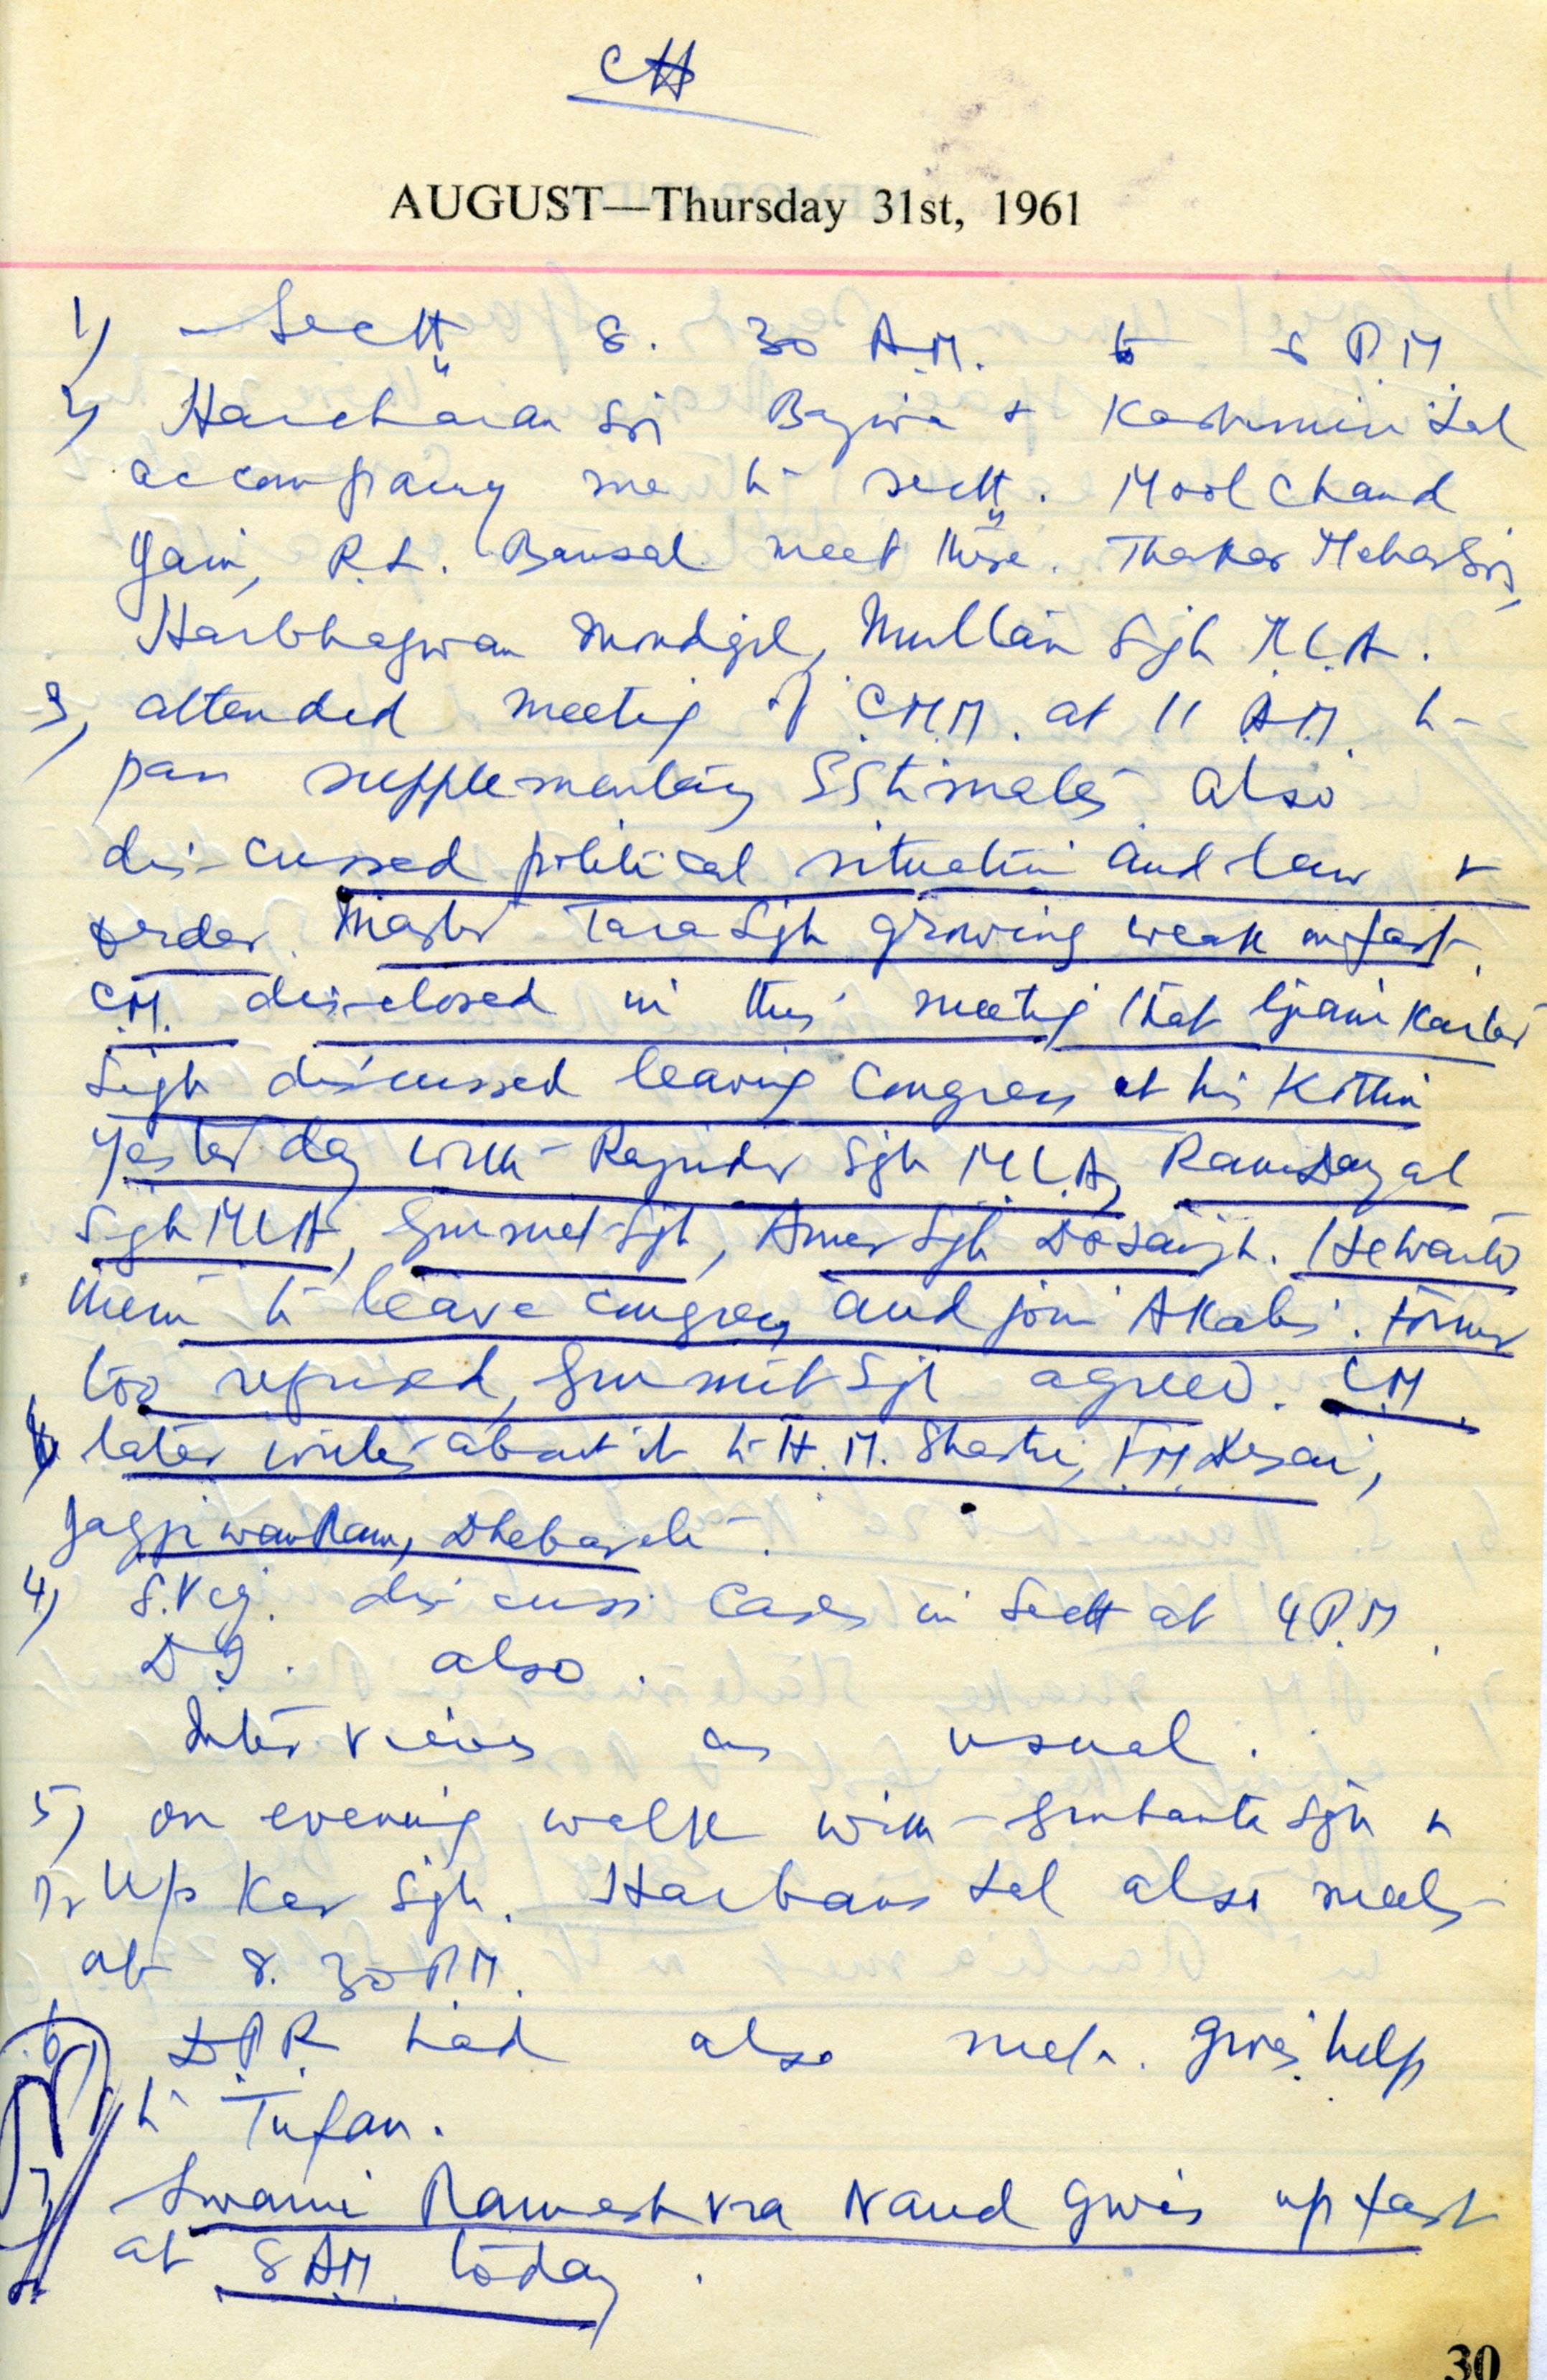 CH
AUGUST—Thursday 31st, 1961
1) Sectt 8. 30 A.M. to 5 P.M
2) Harcharan Sgh Bajwa & Kashmiri Lal
accompany me to sectt. Mool Chand
Jain, R.L. Bansal meet there. Thakar Mehar Sgh,
Harbhagwan Moudgil, Multan Sgh M.L.A.
3) attended meeting of C.M.M. at 11 A.M. to
pass supplementary Estimates also
discussed political situation and law &
order. Master Tara Sgh growing weak on fast.
C.M. disclosed in this meeting that Giani Kartar
Sigh discussed leaving Congress at his Kothi
yesterday with Rajinder Sgh M.L.A, Ram Dayal
Sgh MLA, Gurmel Sgh, Amar Sgh Dosanjh. He wants
them to leave congress and join Akalis. Former
too refused, Gurmit Sgh agreed. C.M.
later writes about it to H.M. Shastri, F.M Desai,
Jagjiwan Ram, Dhebar etc.
4) S.Vig. discuss cases in Sectt at 4 P.M.
D I. also.
Interviews as usual.
5) on evening walk with Gurbanta Sgh &
Kar Sgh. Harbans Lal also meets
at 8. 30 P.M.
6) D.P.R had also met. gives help
to Tufan.
7) Swami Rameshvra Nand gives up fast
at 8 AM. today.
30